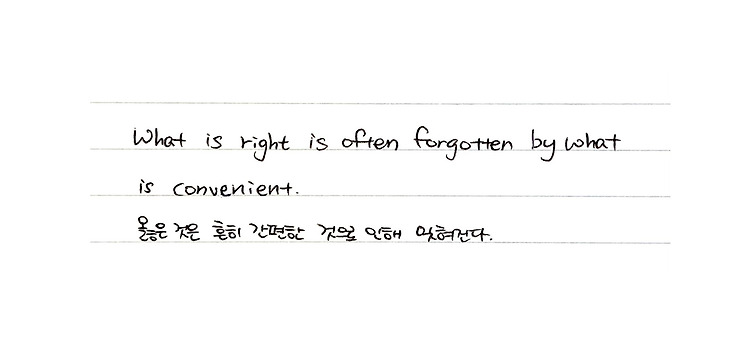 What is right is often forgotten by what
is convenient.
옳은 것은 흔히 간편한 것으로 인해 잊혀진다.